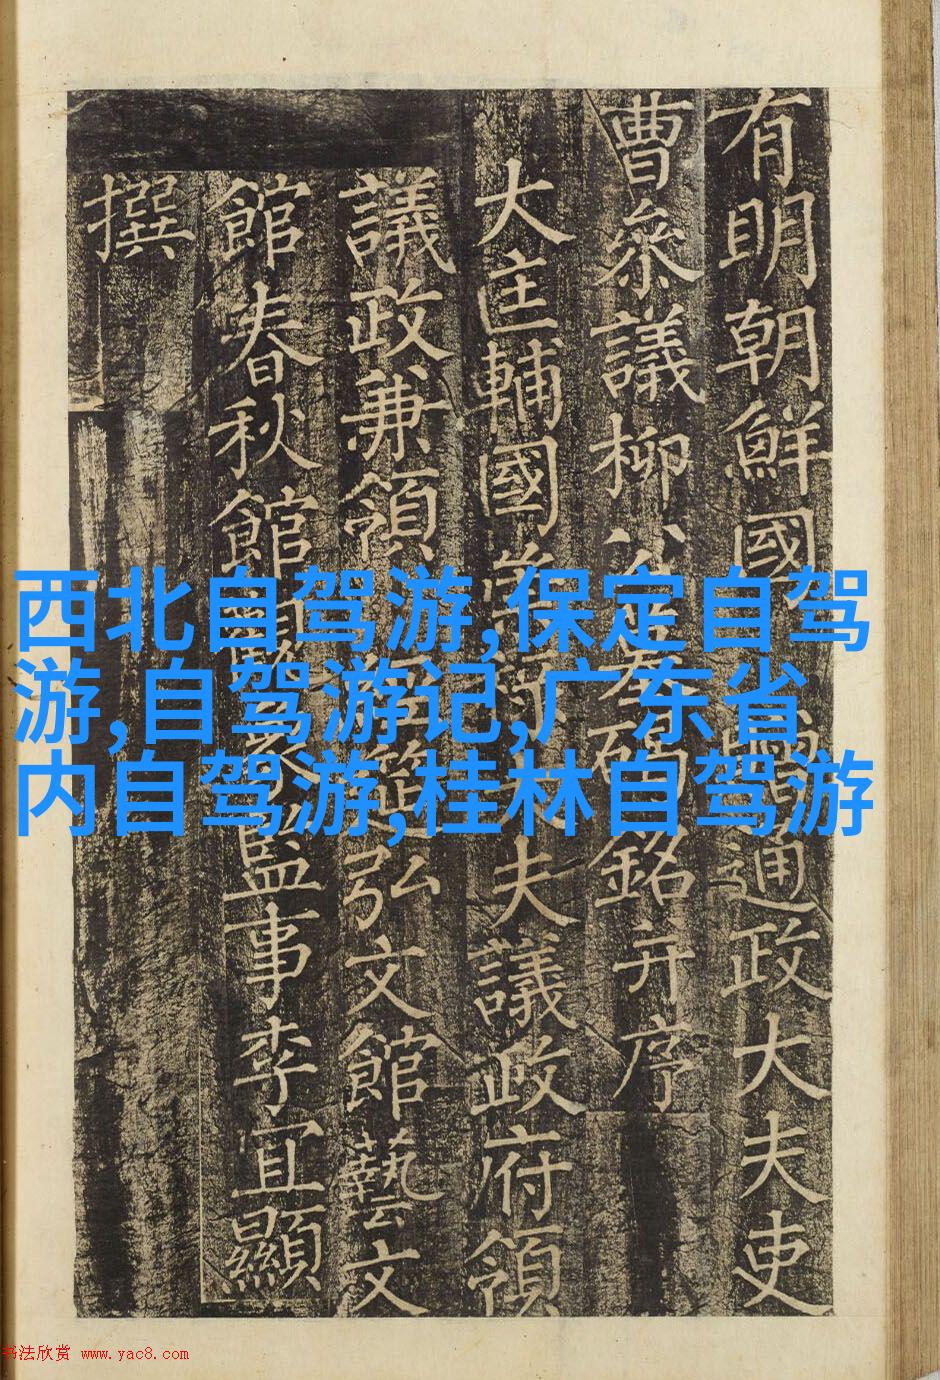 有明朝鮮國通政大夫吏
曹叅議柳公墓碣銘并序
大匡輔國崇祿大夫議政府領
議政兼領經筵弘文館藝文
館春秋館觀象監事李宜顯
撰
西北自驾游,保定自驾
游,自驾游记,广东省
内自驾游,桂林自驾游
书法欣赏 www.yac8.com